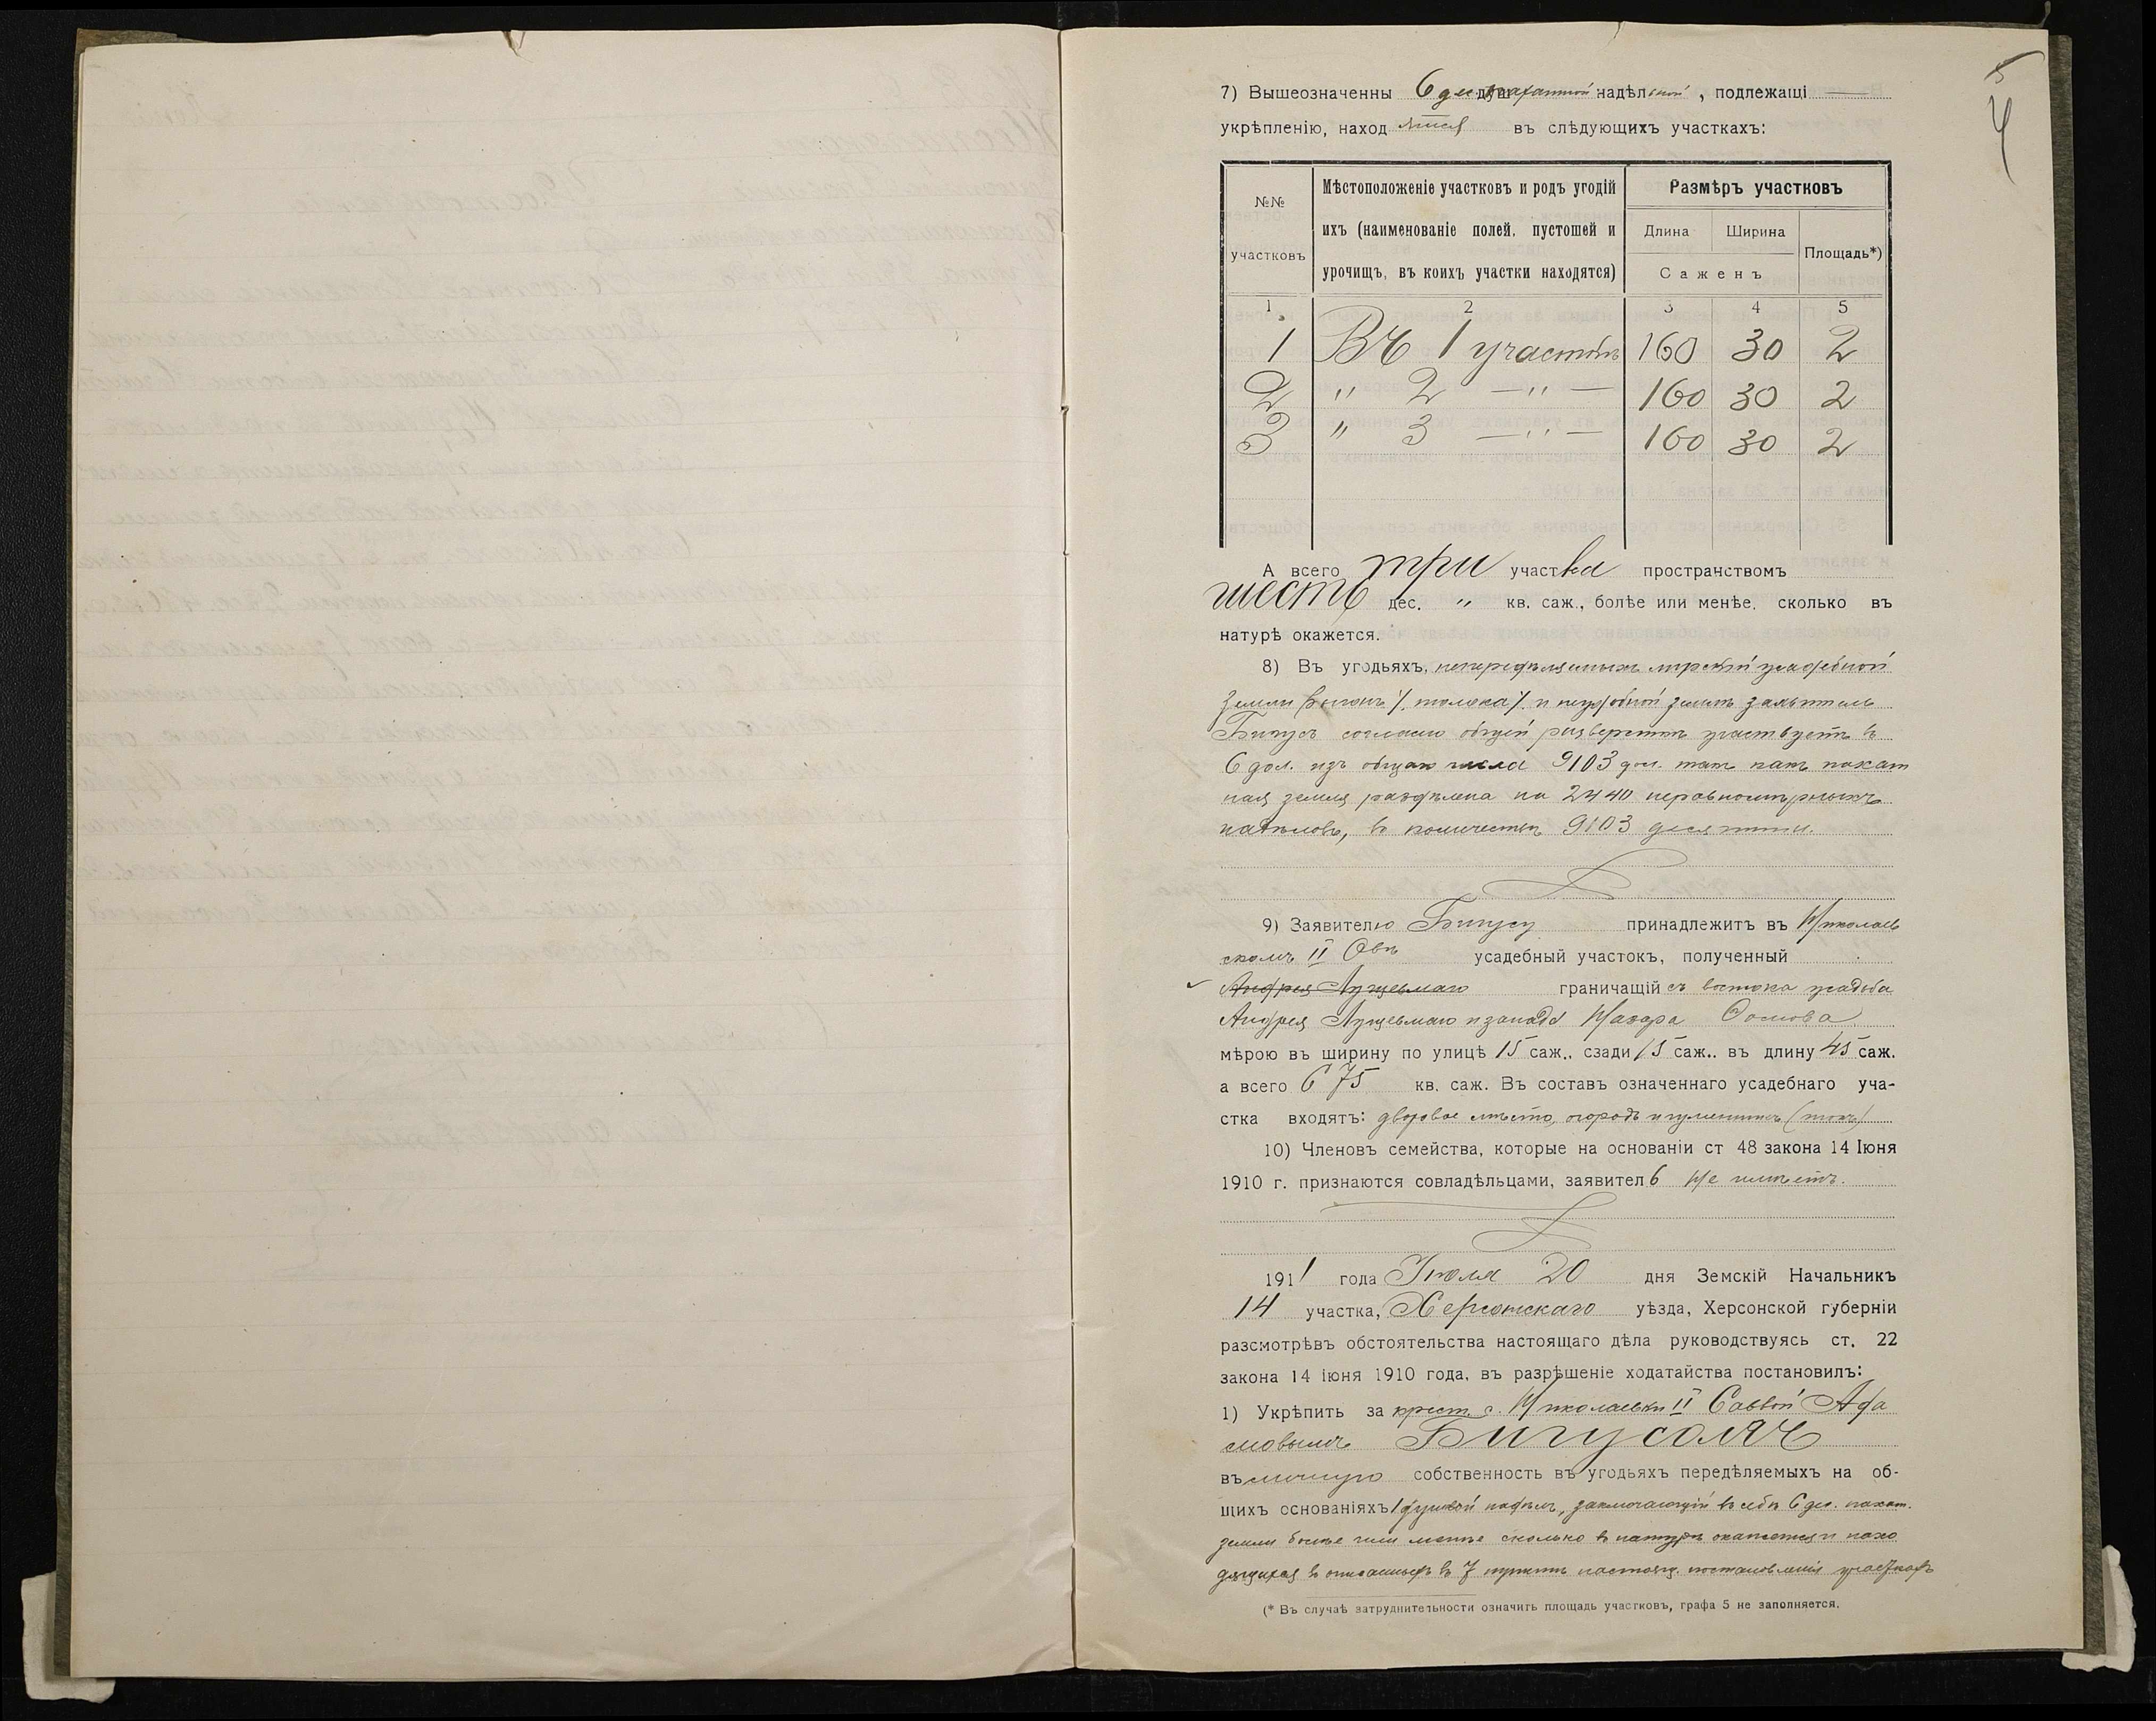 5
4
7) Вышеозначенны 6 дес. душ пахатной надѣльной, подлежащі —
укрѣпленію, находятся въ слѣдующихъ участкахъ:
№№ участковъ
Мѣстоположеніе участковъ и родъ угодій
ихъ (наименованіе полей, пустошей и
урочищъ, въ коихъ участки находятся)
Размѣръ участковъ
Длина Ширина Площадь*)
Саженъ
1 2 3 4 5
1 Въ 1 участкѣ 160 30 2
2 " 2 — " — 160 30 2
3 " 3 — " — 160 30 2
А всего три участка пространствомъ
шесть дес. " кв. саж., болѣе или менѣе, сколько въ
натурѣ окажется.
8) Въ угодьяхъ, непередѣляемыхъ мірской усадебной
земли выгонъ /толока/ и неудобной земли заявитель
Бигусъ согласно общей разверстки участвуетъ въ
6 дол. изъ общаго числа 9103 дол. такъ какъ пахат
ная земля раздѣлена на 2440 неравномѣрныхъ
надѣловъ, въ количествѣ 9103 десятины.
9) Заявителю Бигусу принадлежитъ въ Николаев
скомъ II Об-вѣ усадебный участокъ, полученный
Андрея граничащій съ востока усадьба
Андрея и запада Назара
мѣрою въ ширину по улицѣ 15 саж., сзади 15 саж.. въ длину 45 саж.
а всего 675 кв. саж. Въ составъ означеннаго усадебнаго уча-
стка входятъ: дворовое мѣсто, огородъ и гуменникъ (токъ)
10) Членовъ семейства, которые на основаніи ст 48 закона 14 Іюня
1910 г. признаются совладѣльцами, заявитель не имѣетъ.
1911 года Іюля 20 дня Земскій Начальникъ
14 участка, Херсонскаго уѣзда, Херсонской губерніи
разсмотрѣвъ обстоятельства настоящаго дѣла руководствуясь ст. 22
закона 14 іюня 1910 года, въ разрѣшеніе ходатайства постановилъ:
1) Укрѣпить за крест. с. Николаевки II Саввой
Бигусомъ
въ личную собственность въ угодьяхъ передѣляемыхъ на об-
щихъ основаніяхъ 1 душевой надѣлъ, заключающій въ себѣ 6 дес. пахат.
земли болѣе или менѣе сколько въ натурѣ окажется и нахо
дящихся въ описанныхъ въ 7 пунктѣ настоящ. постановленія участкахъ
(* Въ случаѣ затруднительности означить площадь участковъ, графа 5 не заполняется.